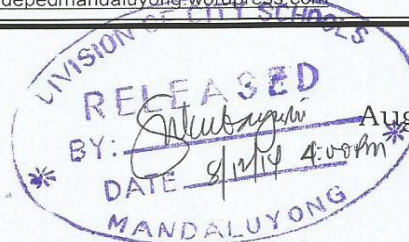 depedmandaluyong.wordpress.com
DIVISION OF CITY SCHOOLS
RELEASED
BY:
Aug
DATE 8/12/14 4:00 PM
MANDALUYONG